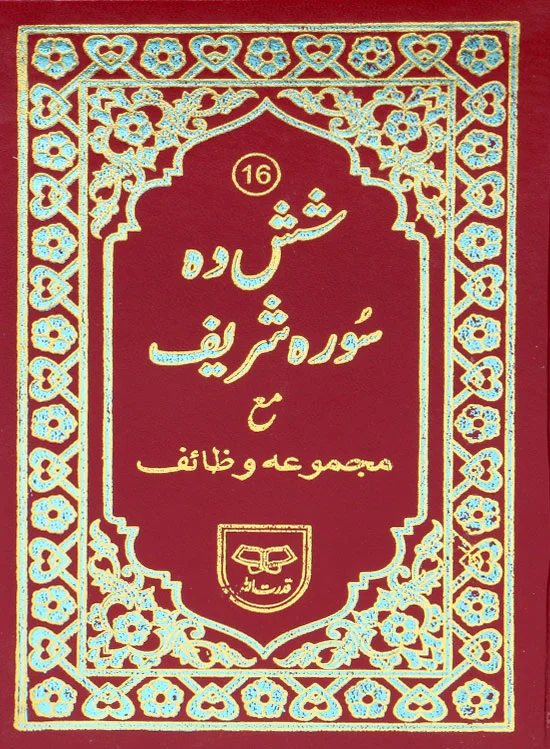 16
شش ده
سُوره شریف
مع
مجموعه وظائف
قدرت الله